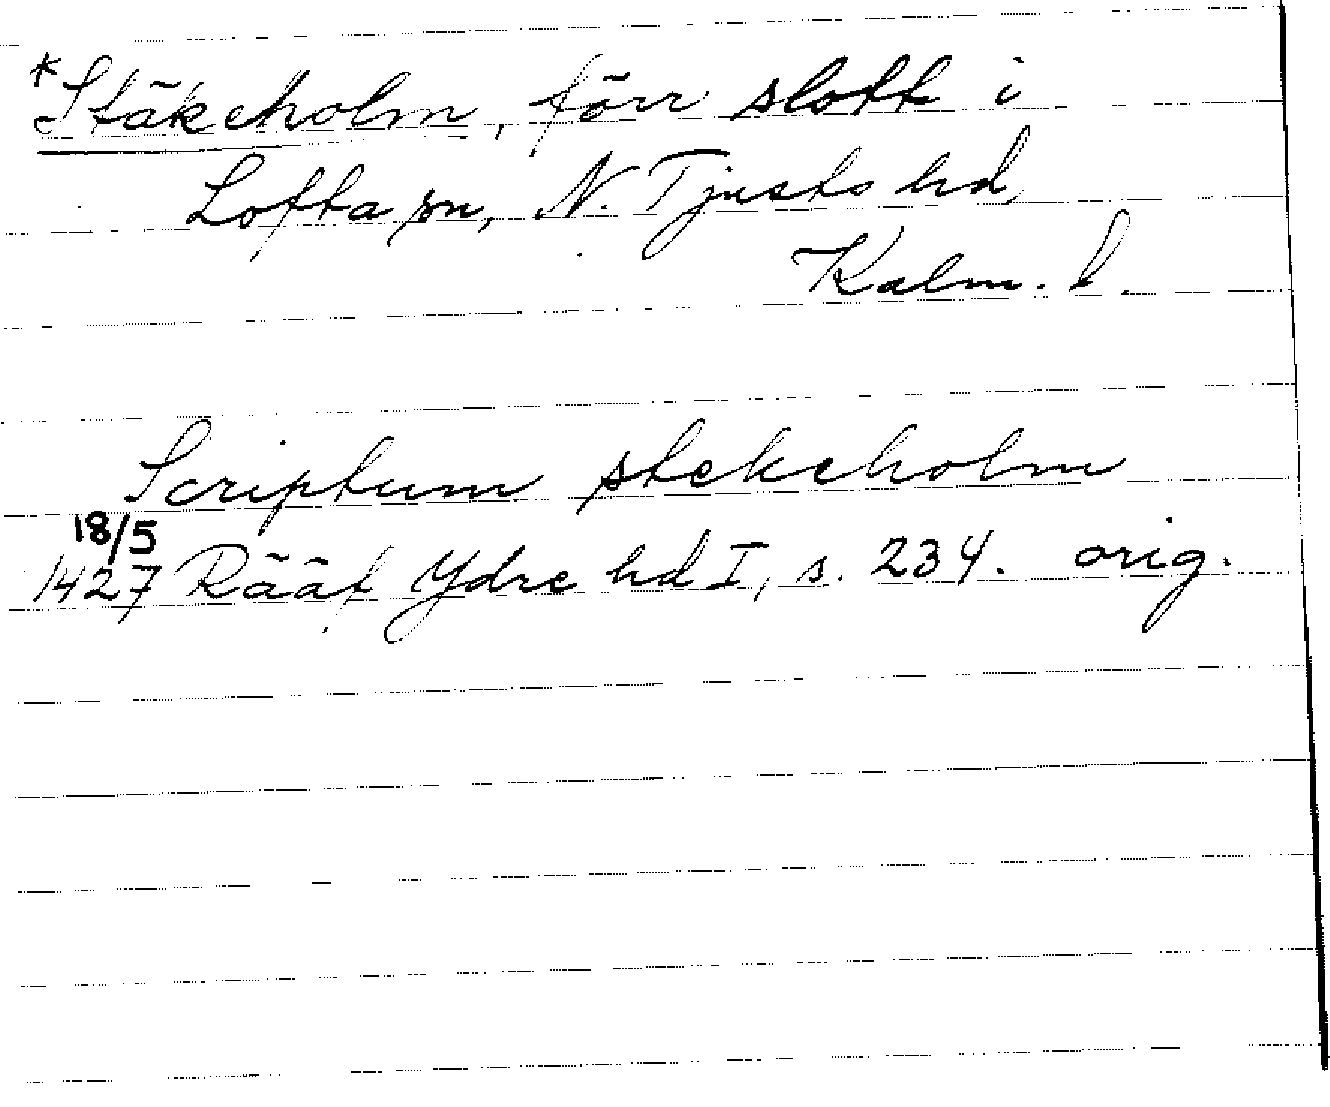 *Stäkeholm, förr slott i
Lofta sn, N. Tjusts hd,
Kalm. l.
Scriptum stekeholm
18/5
1427 Rääf Ydre hd I, s. 234. orig.